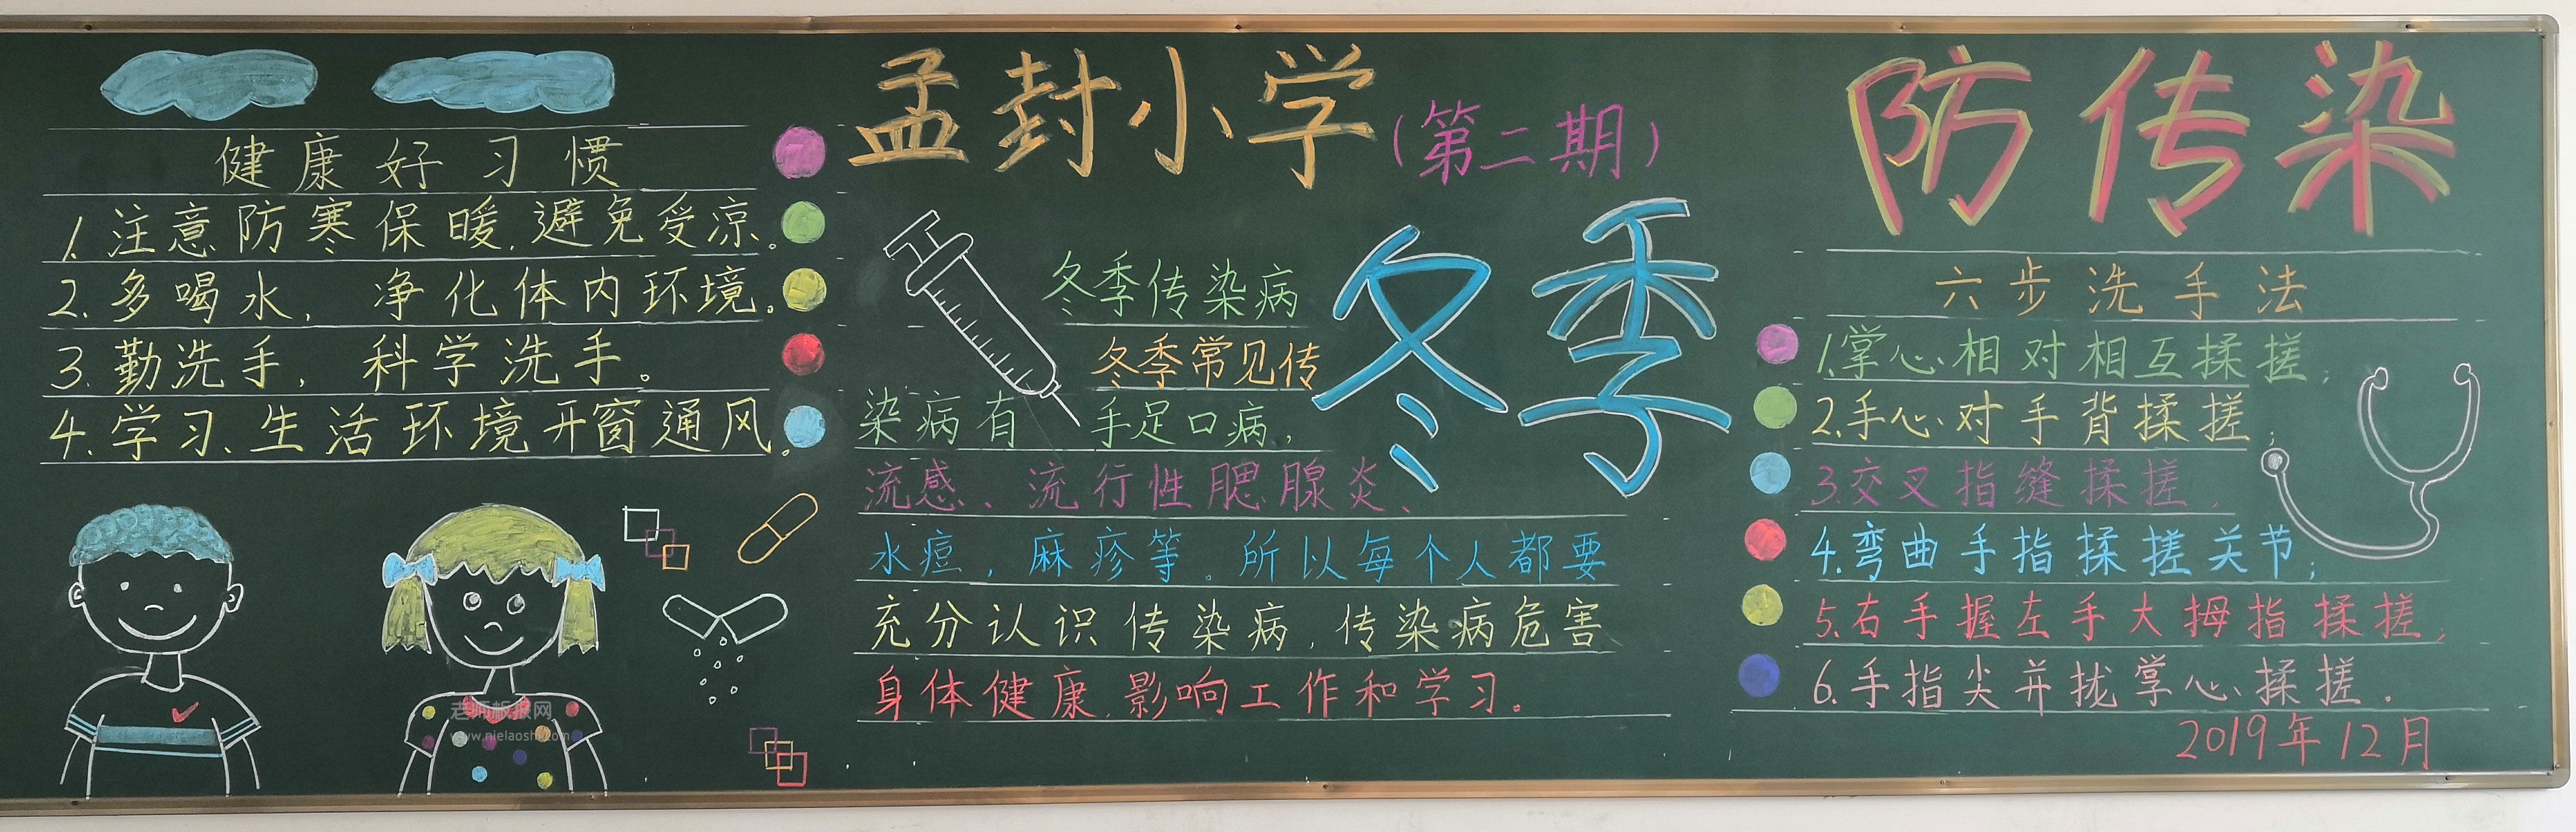 健康好习惯
1.注意防寒保暖,避免受凉。
2.多喝水,净化体内环境。
3.勤洗手,科学洗手。
4.学习、生活环境开窗通风。
老师板报网
www.nielaoshi.com
孟封小学(第二期)
冬季
冬季传染病
冬季常见传
染病有 手足口病,
流感、流行性腮腺炎、
水痘,麻疹等。所以每个人都要
充分认识传染病,传染病危害
身体健康,影响工作和学习。
防传染
六步洗手法
1.掌心相对相互揉搓;
2.手心对手背揉搓;
3.交叉指缝揉搓,
4.弯曲手指揉搓关节;
5.右手握左手大拇指揉搓,
6.手指尖并拢掌心揉搓.
2019年12月